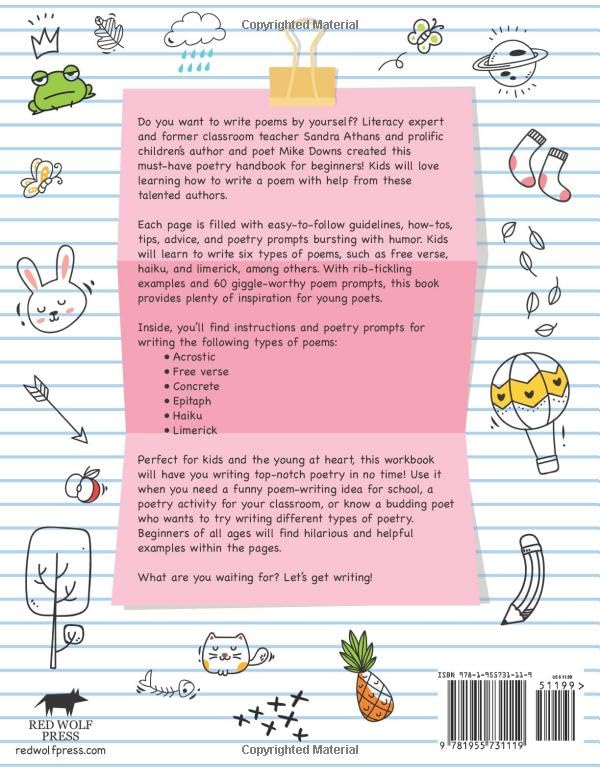 Copyrighted Material
Do you want to write poems by yourself? Literacy expert
and former classroom teacher Sandra Athans and prolific
children's author and poet Mike Downs created this
must-have poetry handbook for beginners! Kids will love
learning how to write a poem with help from these
talented authors.
Each page is filled with easy-to-follow guidelines, how-tos,
tips, advice, and poetry prompts bursting with humor. Kids
will learn to write six types of poems, such as free verse,
haiku, and limerick, among others. With rib-tickling
examples and 60 giggle-worthy poem prompts, this book
provides plenty of inspiration for young poets.
Inside, you'll find instructions and poetry prompts for
writing the following types of poems:
• Acrostic
• Free verse
• Concrete
• Epitaph
• Haiku
• Limerick
Perfect for kids and the young at heart, this workbook
will have you writing top-notch poetry in no time! Use it
when you need a funny poem-writing idea for school, a
poetry activity for your classroom, or know a budding poet
who wants to try writing different types of poetry.
Beginners of all ages will find hilarious and helpful
examples within the pages.
What are you waiting for? Let's get writing!
RED WOLF
PRESS
redwolfpress.com
ISBN 978-1-955731-11-9
US $ 11.99
51199 >
9 781955 731119
Copyrighted Material